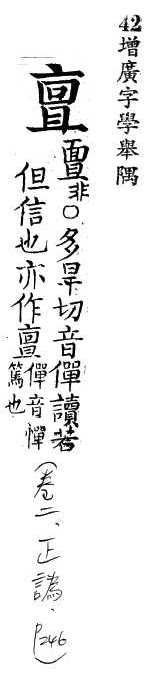 42增廣字學舉隅
亶
非○多旱切音僤讀若
但信也亦作亶僤音憚
篤也
(卷二、正譌、P246)